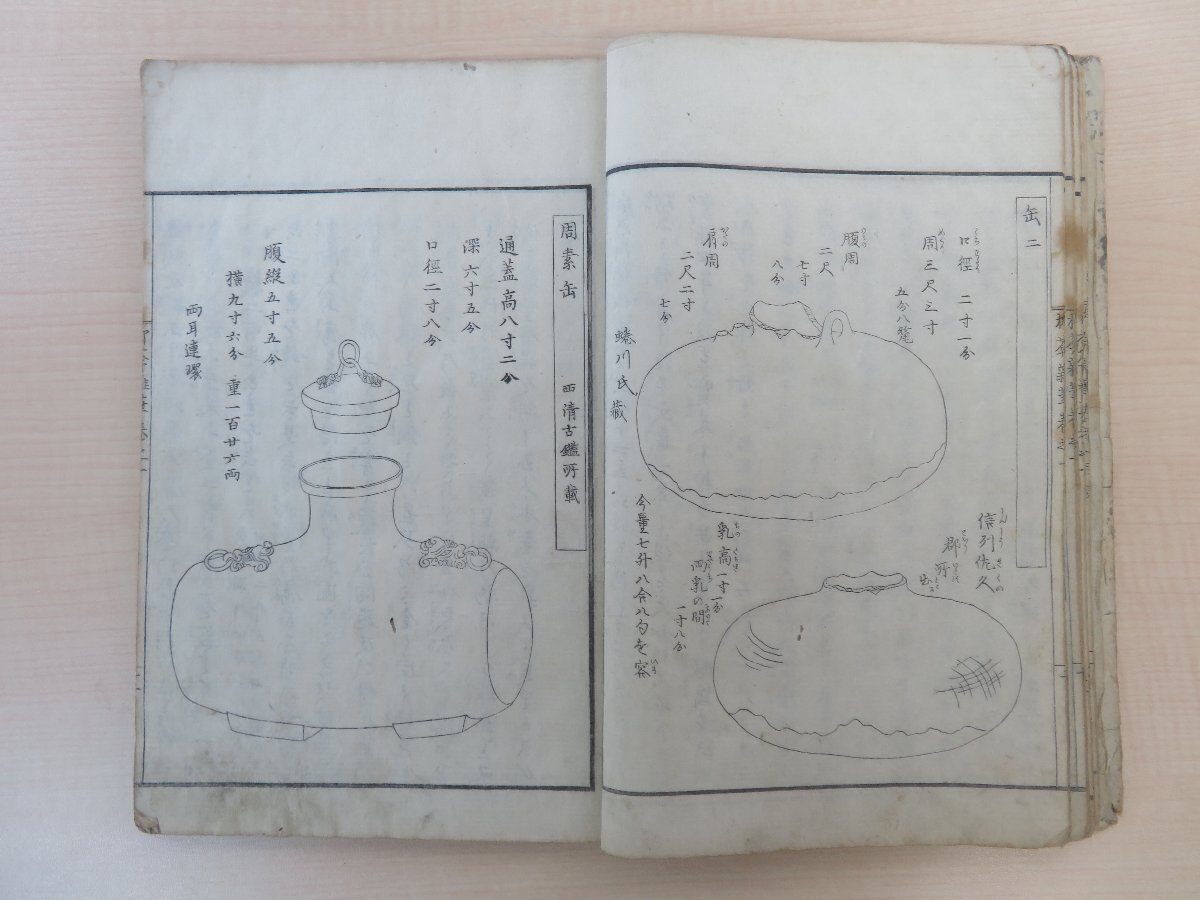 缶二
口徑 二寸一分
周三尺三寸
五分八釐
腹周
二尺
七寸
八分
肩周
二尺二寸
七分
蜷川氏藏
信列佐久
郡所
乳高一寸一分
両乳の間
一寸八分
今量七升八合八勺を容
周素缶 西清古鑑所載
通蓋高八寸二分
深六寸五分
口徑二寸八分
腹縱五寸五分
橫九寸六分 重一百廿六両
両耳連環